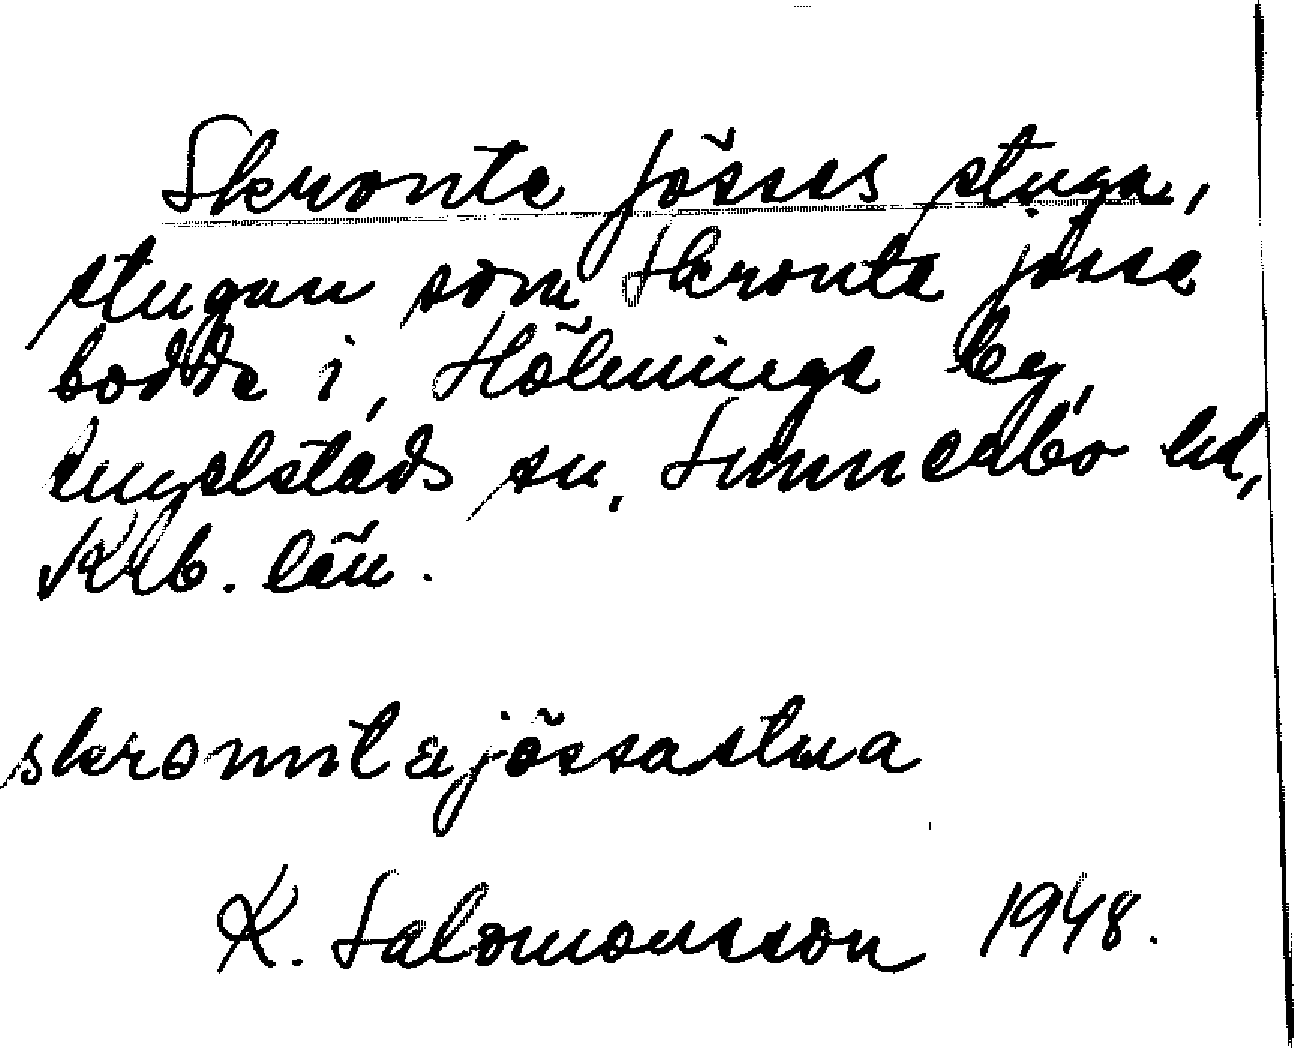 Skronte jösses stuga,
stugan som Skronte jösse
bodde i, Hölminge by,
Angelstads sn, Sunnerbo hd,
Krb. län.
skronntajössastua
K. Salomonsson 1948.